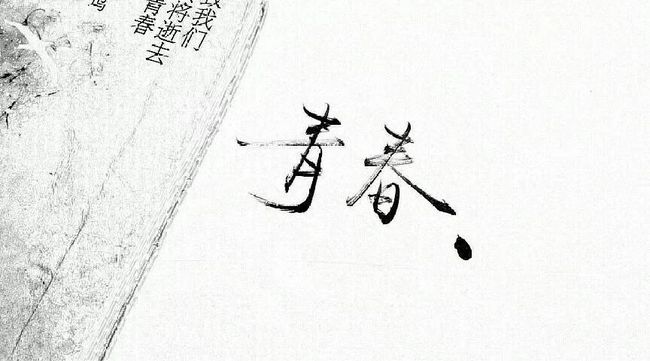 我们
将逝去
青春
青春、